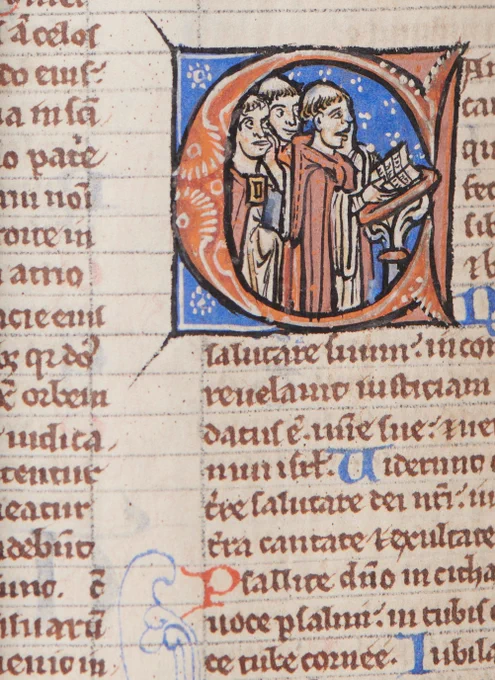 ā celos
do eius
ia in sci
o patr̄e
am noi
oite in
atrio
acie eius
orbem
iudica
tentur
eatur
debūt
ienio in
CAn
ca
qu
fec
sib
& b
N
salutare suum: in con
reuelauit iusticiam
datus ē. misie sue: & ueri
mui isrl. Uiderunt o
t̄re salutare dei nr̄i: iu
t̄ra cantate & exultate
Psallite dn̄o in citha
uoce psalmi: in tubis
ce tube cornee. Iubila